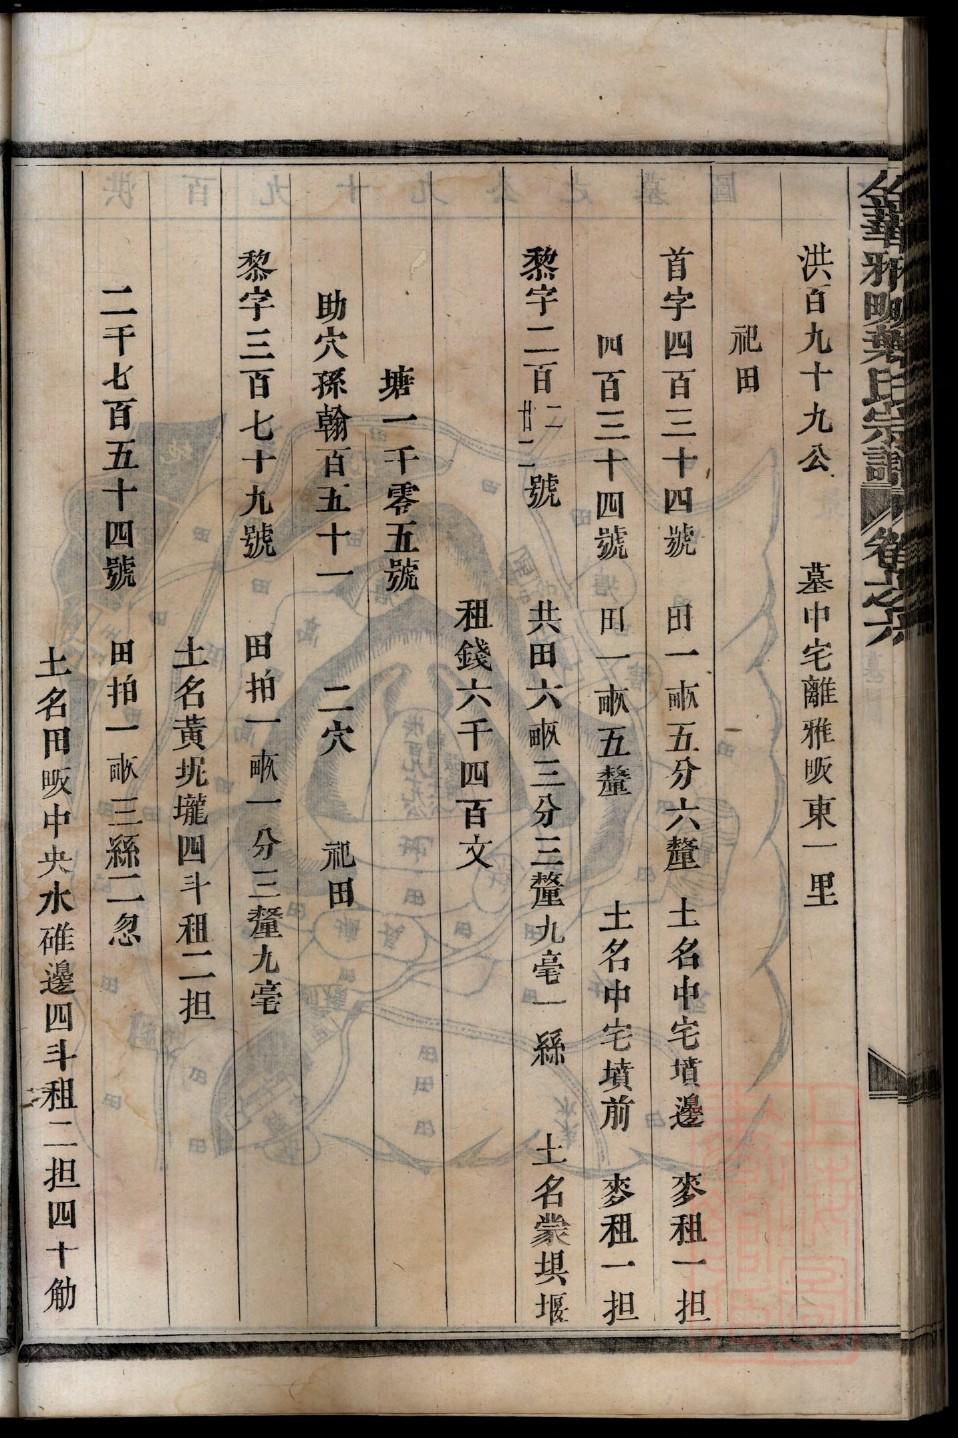 金華雅畈葉氏宗譜 卷之六
洪百九十九公 墓中宅離雅畈東一里
祀田
首字四百三十四號 田一畝五分六釐 土名中宅墳邊 麥租一担
四百三十四號 田一畝五釐 土名中宅墳前 麥租一担
黎字二百二廿二號 共田六畝三分三釐九毫一絲 土名裳垻堰
租錢六千四百文
塘一千零五號
助穴孫翰百五十一 二穴 祀田
黎字三百七十九號 田拍一畝一分三釐九毫
土名黃坭壠四斗租二担
二千七百五十四號 田拍一畝三絲二忽
土名田畈中央水碓邊四斗租二担四十觔